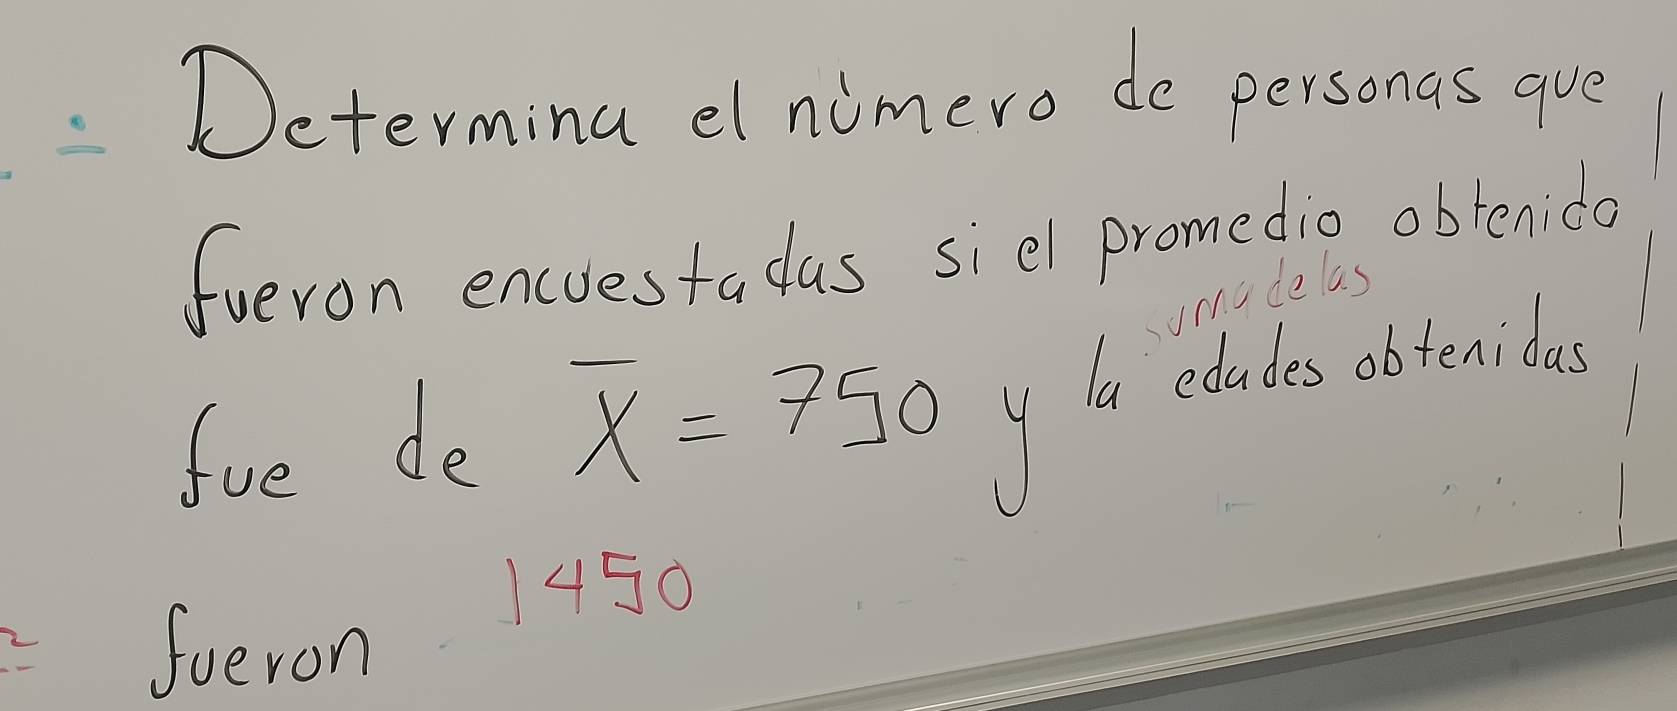 Determina el número de personas que
fueron encuestadas si el promedio obtenido
suma de las
fue de X̅ = 750 y la edades obtenidas
fueron 1450